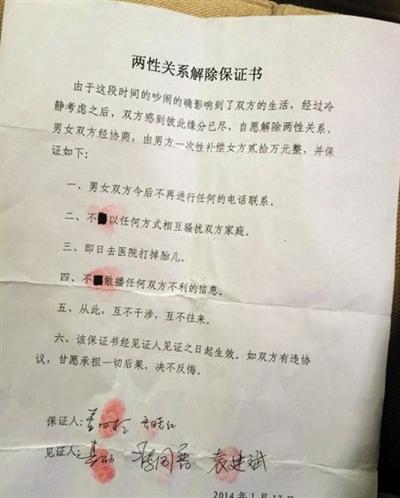 两性关系解除保证书
由于这段时间的吵闹的确影响到了双方的生活，经过冷
静考虑之后，双方感到彼此缘分已尽，自愿解除两性关系，
男女双方经协商，由男方一次性补偿女方贰拾万元整，并保
证如下：
一、男女双方今后不再进行任何的电话联系。
二、不以任何方式相互骚扰双方家庭。
三、即日去医院打掉胎儿。
四、不散播任何双方不利的信息。
五、从此，互不干涉，互不往来。
六、该保证书经见证人见证之日起生效。如双方有违协
议，甘愿承担一切后果，决不反悔。
保证人：
见证人： 袁建斌
2014年1月17日